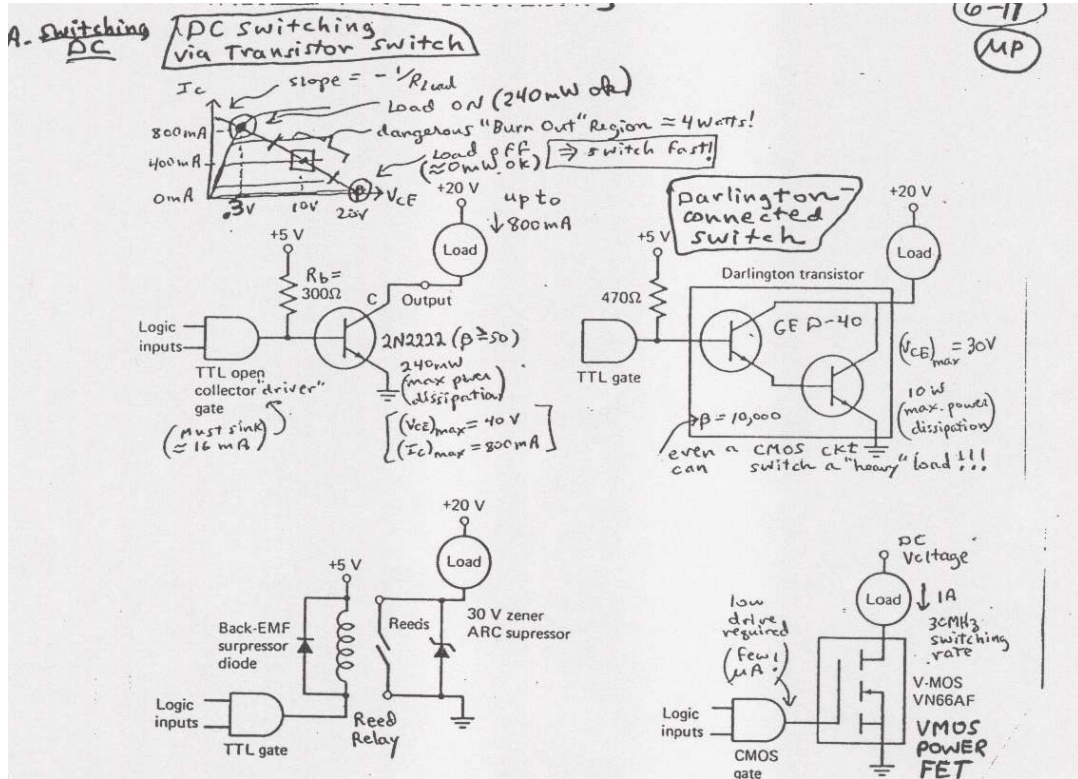 6-11
MP
A. Switching DC
DC switching
via Transistor switch
Ic
slope = -1/RLoad
Load ON (240mW ok)
dangerous "Burn Out" Region ≈ 4 Watts!
Load off
(≈0mW ok)
⇒ switch fast!
800mA
400mA
0mA
.3V
10V
20V
VCE
+20 V
up to
↓ 800mA
Load
+5 V
Rb =
300Ω
C
Output
Logic
inputs
TTL open
collector "driver"
gate
(Must sink
≈ 16 mA)
2N2222 (β ≥ 50)
240mW
(max power
dissipation)
[(VCE)max = 40 V
(Ic)max = 800mA]
Darlington-
connected
switch
+20 V
Load
+5 V
Darlington transistor
470Ω
GE D-40
TTL gate
(VCE)max = 30V
10 W
(max. power
dissipation)
β = 10,000
even a CMOS ckt
can switch a "heavy" load!!!
+20 V
Load
+5 V
Back-EMF
surpressor
diode
Reeds
30 V zener
ARC supressor
Logic
inputs
TTL gate
Reed
Relay
DC
Voltage
Load
↓ 1A
30MHz
switching
rate
low
drive
required
(few!
μA!)
V-MOS
VN66AF
VMOS
POWER
FET
Logic
inputs
CMOS
gate